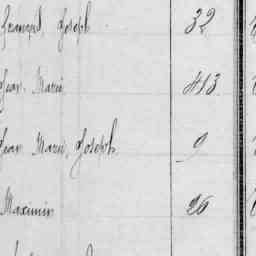 François, Joseph 32
Jean Marie 413
Jean Marie, Joseph 9
Maximin 26